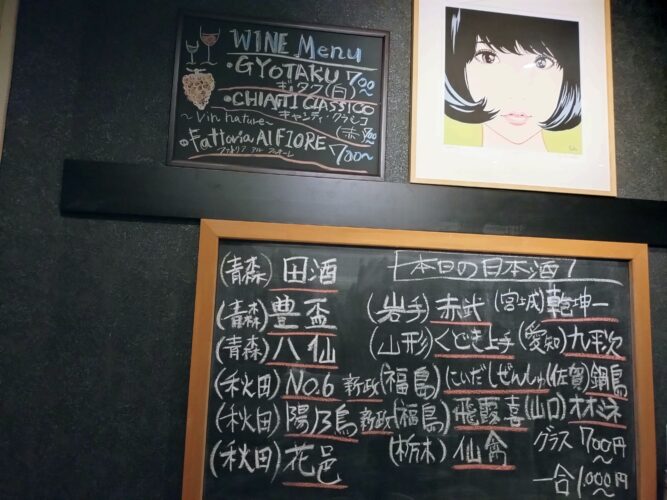 WINE Menu
・GYOTAKU 700~
ギョタク(白)
・CHIANTI CLASSICO
キャンティ・クラシコ
~Vin nature~ (赤) 900
・Fattoria Al FIORE 700~
ファットリア アル フィオーレ
本日の日本酒!
(青森) 田酒
(青森) 豊盃
(青森) 八仙
(秋田) NO.6 新政
(秋田) 陽乃鳥 新政
(秋田) 花邑
(岩手) 赤武 (宮城) 乾坤一
(山形) くどき上手 (愛知) 九平次
(福島) にいだしぜんしゅ (佐賀) 鍋島
(福島) 飛露喜 (山口) オオミネ
(栃木) 仙禽 グラス 700円
~
一合 1,000円